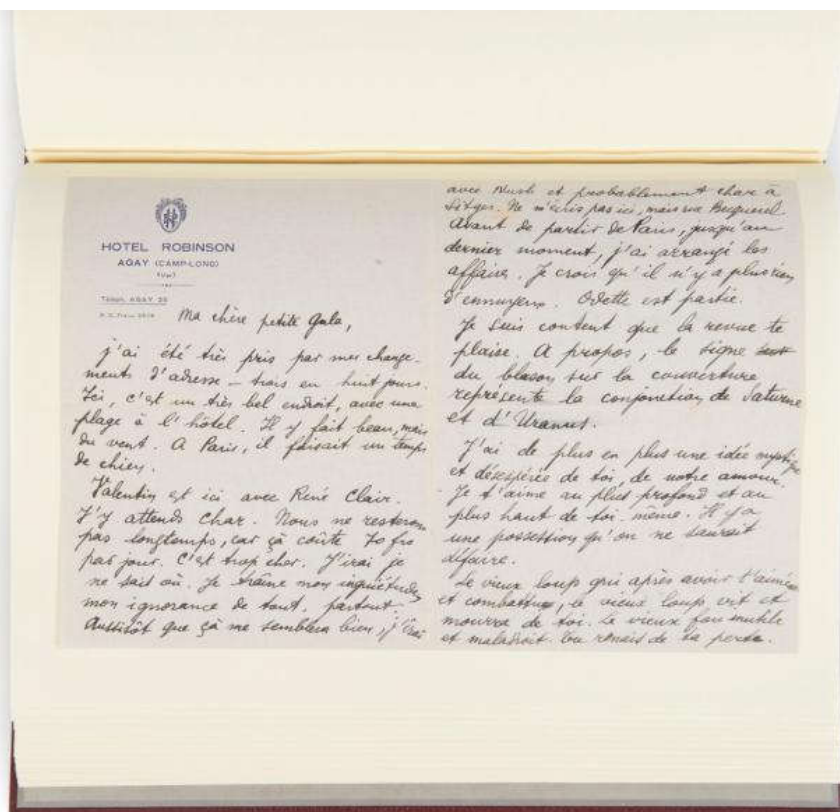 HOTEL ROBINSON
AGAY (CAMP-LONG)
(Var)
Téléph. AGAY 28
Ma chère petite Gala,
j'ai été très pris par mes change-
ments d'adresse – trois en huit jours.
Ici, c'est un très bel endroit, avec une
plage à l'hôtel. Il y fait beau, mais
du vent. A Paris, il faisait un temps
de chien.
Valentin est ici avec René Clair.
J'y attends Char. Nous ne resterons
pas longtemps, car çà coûte 70 frs
par jour. C'est trop cher. J'irai je
ne sait où. Je traîne mon inquiétude,
mon ignorance de tout, partout.
Aussitôt que çà me semblera bien, j'irai
avec Nush et probablement Char à
Sitges. Ne m'écris pas ici, mais rue Becquerel.
Avant de partir de Paris, jusqu'au
dernier moment, j'ai arrangé les
affaires. Je crois qu'il n'y a plus rien
d'ennuyeux. Odette est partie.
Je suis content que la revue te
plaise. A propos, le signe
du blason sur la couverture
représente la conjonction de Saturne
et d'Uranus.
J'ai de plus en plus une idée mystique
et désespérée de toi, de notre amour.
Je t'aime au plus profond et au
plus haut de toi-même. Il y a
une possession qu'on ne saurait
défaire.
Le vieux loup gris après avoir t'aimée
et combattue, ce vieux loup vit et
mourra de toi. Le vieux fou inutile
et maladroit. Tu renais de ta perte.